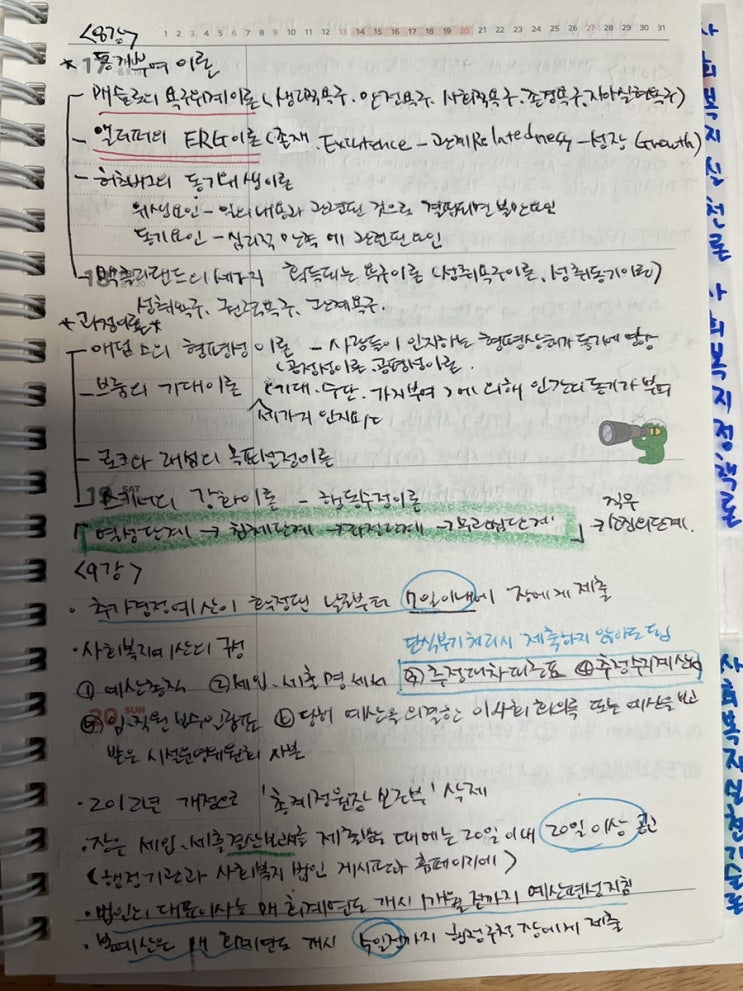 <8강>
1 2 3 4 5 6 7 8 9 10 11 12 13 14 15 16 17 18 19 20 21 22 23 24 25 26 27 28 29 30 31
* 동기부여 이론
- 매슬로의 욕구위계이론 (생리적욕구, 안전욕구, 사회적욕구, 존경욕구, 자아실현욕구)
- 앨더퍼의 ERG이론 (존재 - 관계 Relatedness - 성장 Growth)
- 허츠버그의 동기위생이론
위생요인 - 일의 내용과 관련된 것으로 결핍되면 불만요인
동기요인 - 심리적 만족에 관련된 요인
- 맥클리랜드의 세가지 획득되는 욕구이론 (성취욕구이론, 성취동기이론)
성취욕구, 권력욕구, 관계욕구.
* 과정이론 *
- 애덤스의 형평성 이론 - 사람들이 인지하는 형평상허가 동기에 영향
(공정성이론, 공평성이론.
- 브룸의 기대이론 (기대, 수단, 가치부여)에 의해 인간의 동기가 부여
세가지 인지요소
- 로크와 래섬의 목표설정이론
19 SAT
스키너의 강화이론 - 행동수정이론
「역성단계 → 침체단계 → 좌절단계 → 무관심단계」
직무
<9강>
· 추가경정예산이 확정된 날로부터 7일이내에 장에게 제출
· 사회복지예산의 구성
단식부기 처리시 제출하지 않아도 됨
① 예산총칙 ② 세입·세출 명세서 ③ 추정대차대조표 ④ 추정수지계산서
20 SUN
⑤ 임·직원 보수일람표 ⑥ 당해 예산을 의결한 이사회 회의록 또는 예산을 보고
받은 시설운영위원회 사본
· 2012년 개정으로 '총계정원장 보조부' 삭제
· 장은 세입·세출 결산보고서를 제출할 때에는 20일 이내 20일 이상 공고
(행정기관과 사회복지 법인 게시판과 홈페이지에)
· 법인의 대표이사는 매 회계연도 개시 1개월 전까지 예산편성지침
· 본예산은 매 회계연도 개시 5일전까지 행정구청장에게 제출
사회복지실천론
사회복지정책론
사회복지실천기술론